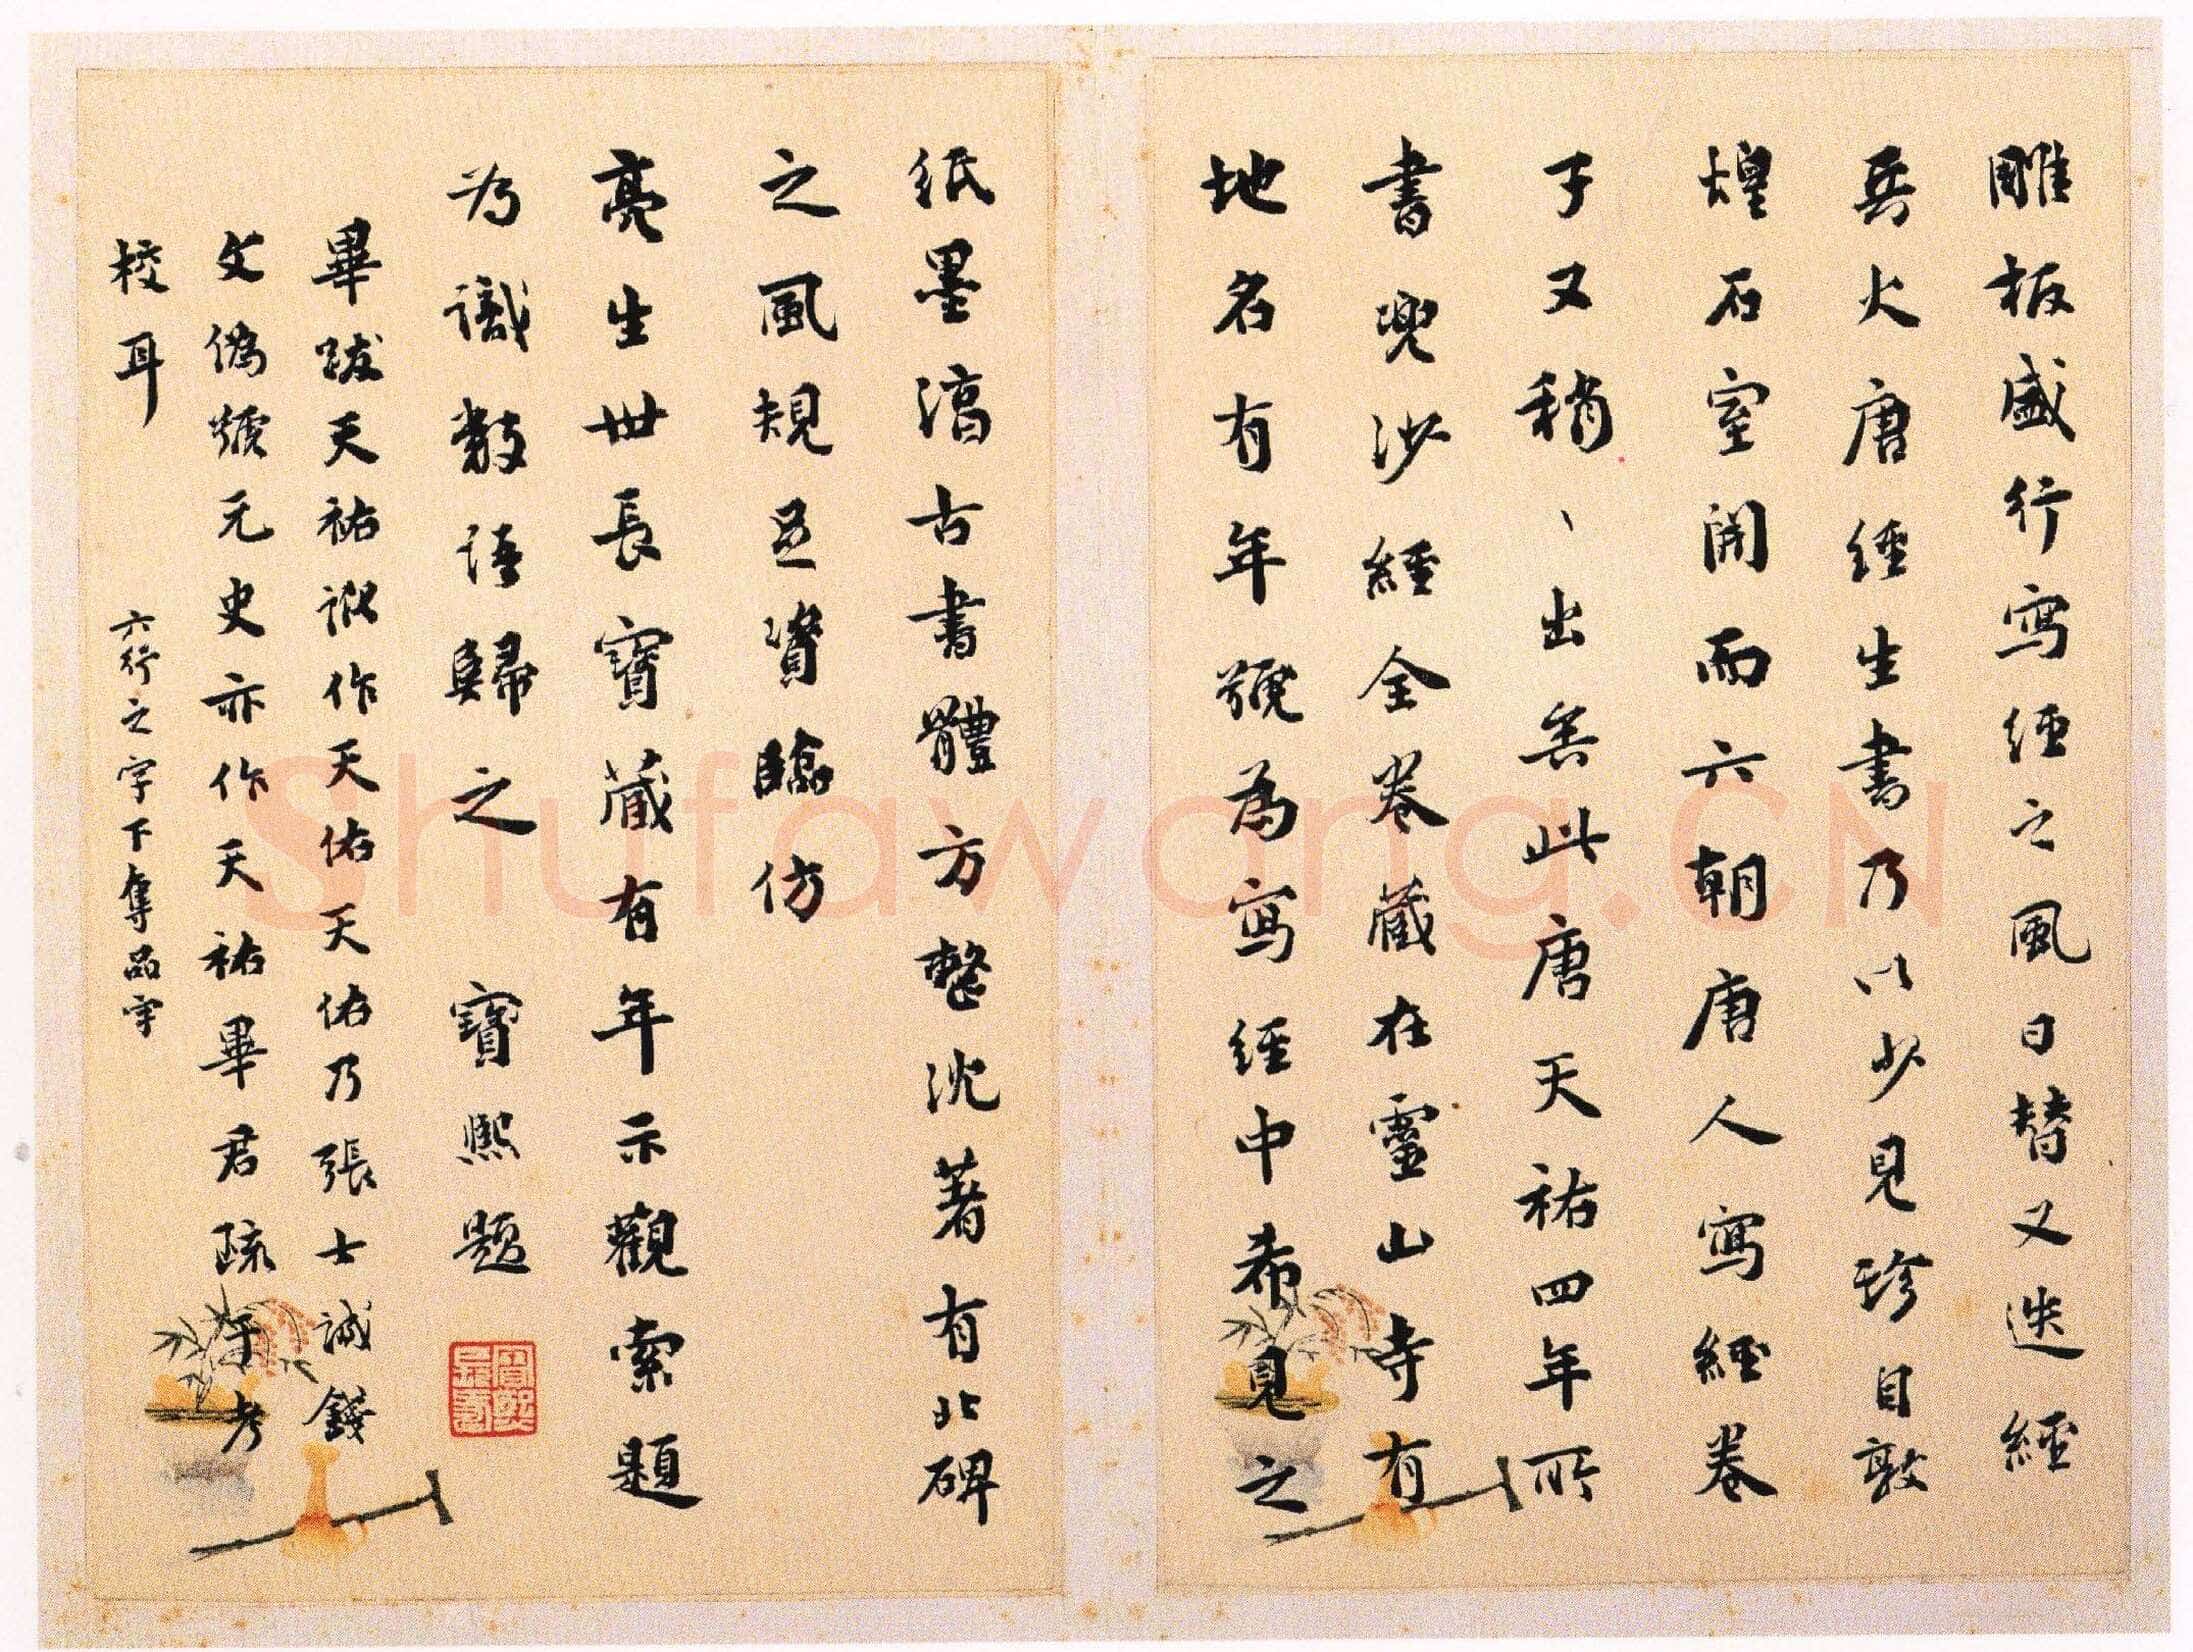 雕板盛行寫經之風日替又迭經
兵火唐經生書乃以少見珍自敦
煌石室開而六朝唐人寫經卷
子又稍、出矣此唐天祐四年所
書兜沙經全卷藏在靈山寺有
地名有年號為寫經中希見之
紙墨渟古書體方整沈著有北碑
之風規足資臨仿
亮生世長寶藏有年示觀索題
為識數語歸之 寶熙題
畢跋天祐訛作天佑天佑乃張士誠錢
文僞號元史亦作天祐畢君疏于考
校耳
六行之字下奪品字
Shufawang.CN